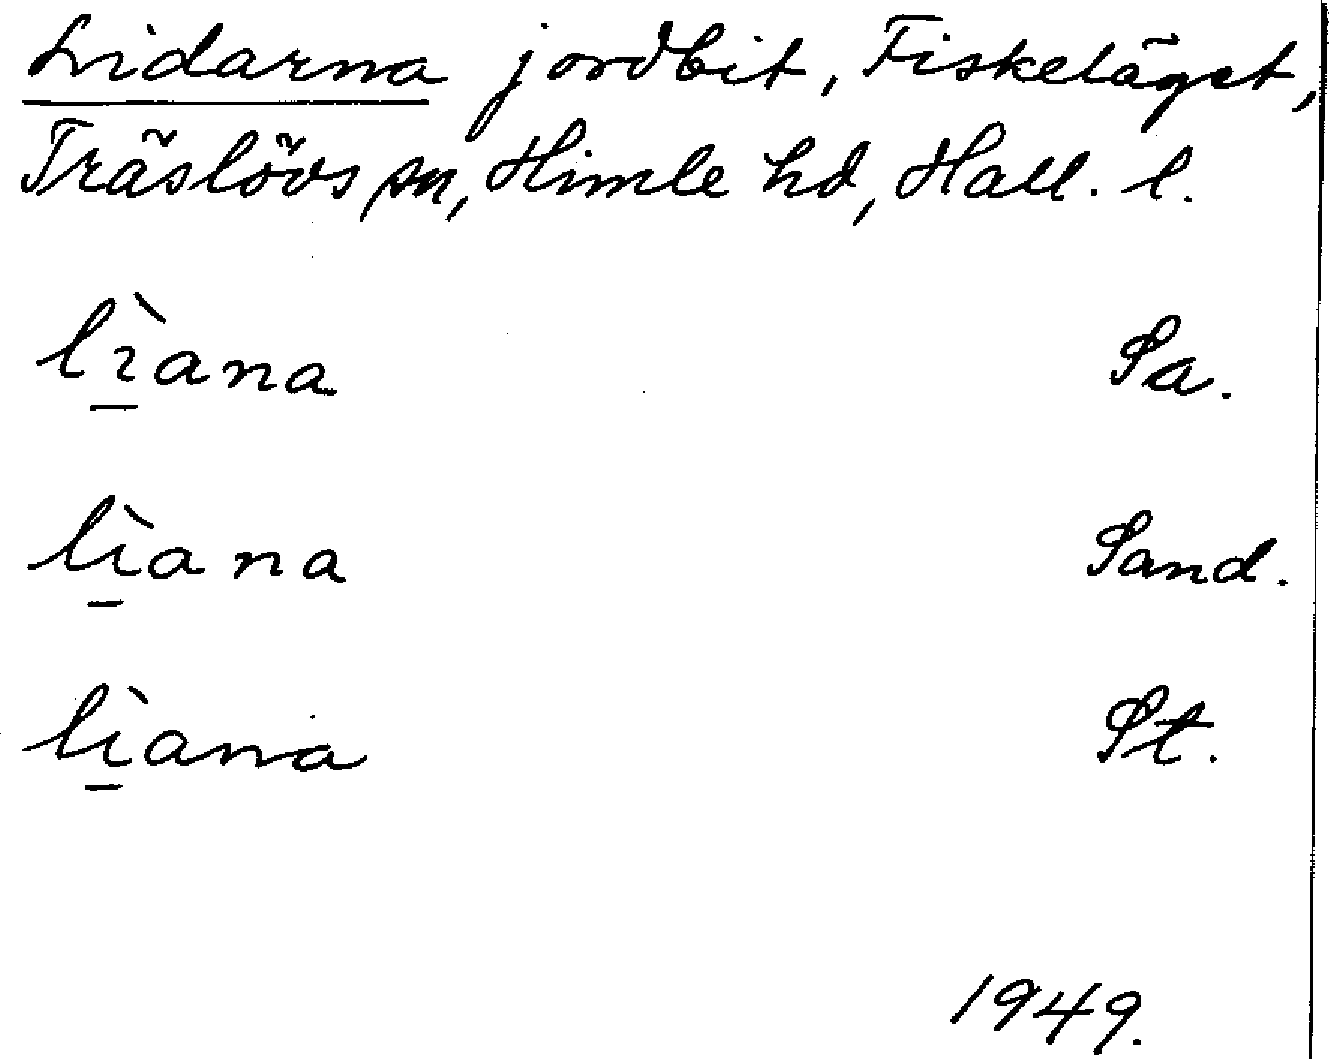 Lidarna jordbit, Fiskeläget,
Träslövs sn, Himle hd, Hall. l.
lı̱̀ana Sa.
lı̱̀ana Sand.
lı̱̀ana St.
1949.